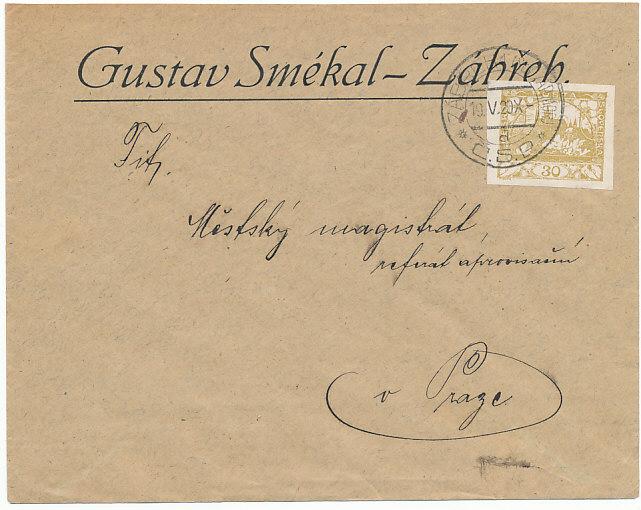 Gustav Smékal – Zábřeh.
10.V.20X
Č.S.P.
30
Tit.
Městský magistrát,
referát aprovisační
v Praze